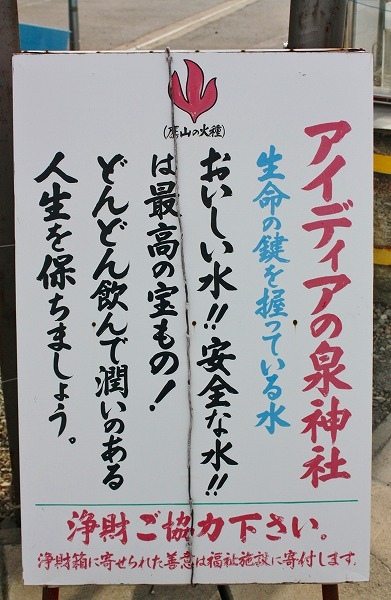 アイディアの泉神社
生命の鍵を握っている水
おいしい水!!安全な水!!
は最高の宝もの!
どんどん飲んで潤いのある
人生を保ちましょう。
浄財ご協力下さい。
浄財箱に寄せられた善意は福祉施設に寄付します。